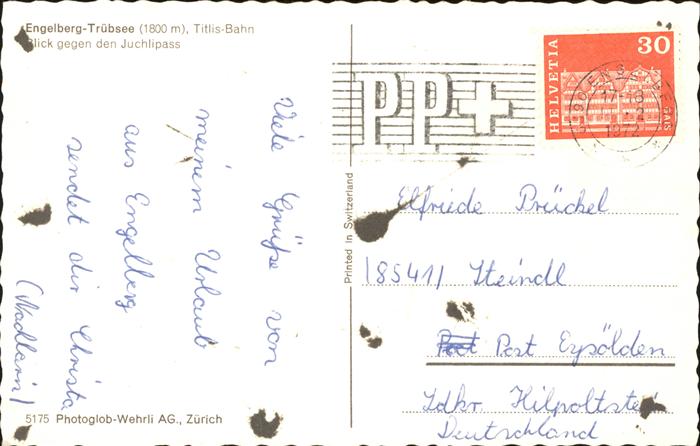 Engelberg-Trübsee (1800 m), Titlis-Bahn
Blick gegen den Juchlipass
Viele Grüße von
meinem Urlaub
aus Engelberg
sendet dir Christa
5175 Photoglob-Wehrli AG., Zürich
Printed in Switzerland
P.P.
HELVETIA
30
GAIS
Elfriede Prückel
(8541) Steindl
Post Eysölden
Ldkr. Hilpoltstein
Deutschland